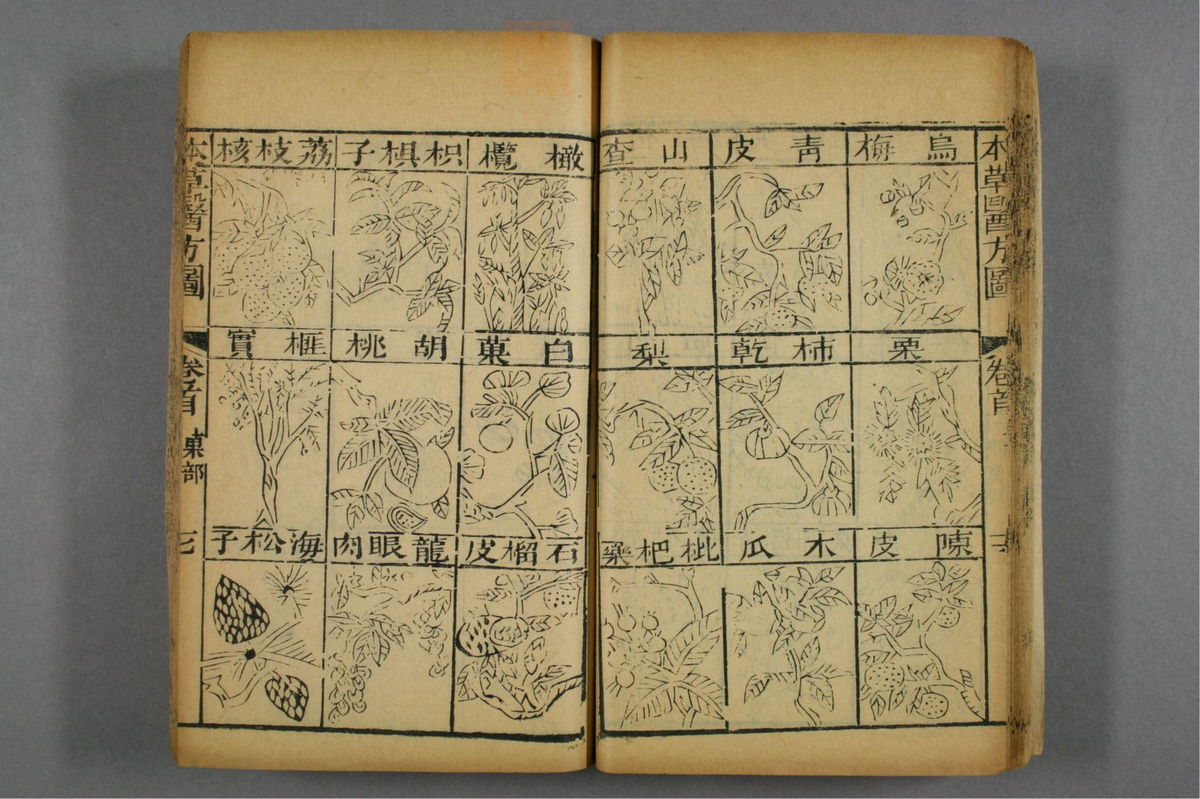 本草醫方圖
烏梅
青皮
山查
栗
柿乾
梨
陳皮
木瓜
枇杷藥
卷首
橄欖
枳椇子
荔枝核
白菓
胡桃
榧實
石榴皮
龍眼肉
海松子
本草醫方圖
卷首
菓部
七